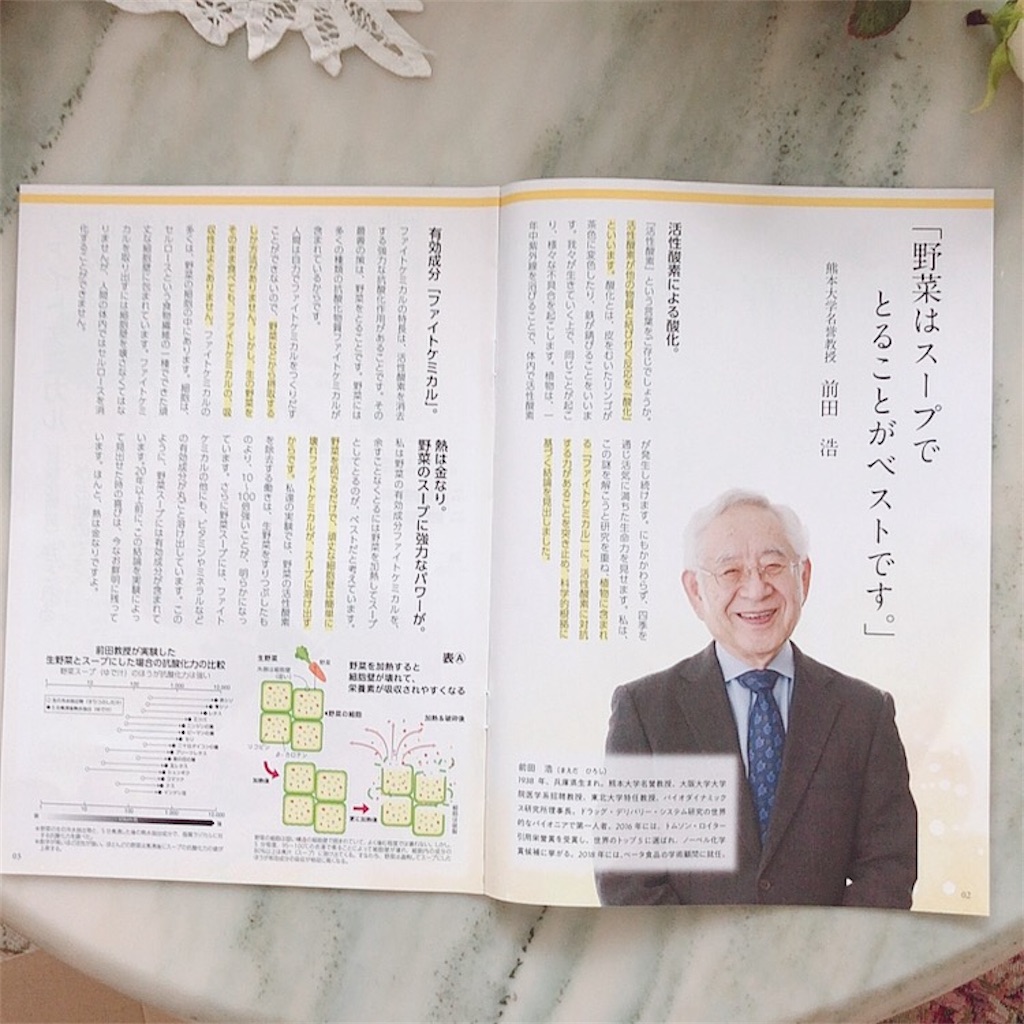 「野菜はスープで
とることがベストです。」
熊本大学名誉教授　前田　浩
活性酸素による酸化。
「活性酸素」という言葉をご存じでしょうか。
活性酸素が他の物質と結び付く反応を「酸化」
といいます。酸化とは、皮をむいたリンゴが
茶色に変色したり、鉄が錆びることをいいま
す。我々が生きていく上で、同じことが起こ
り、様々な不具合を起こします。植物は、一
年中紫外線を浴びることで、体内で活性酸素
が発生し続けます。にもかかわらず、四季を
通じ活気に満ちた生命力を見せます。私は、
この謎を解こうと研究を重ね、植物に含まれ
る「ファイトケミカル」に、活性酸素に対抗
する力があることを突き止め、科学的根拠に
基づく結論を見出しました。
前田　浩（まえだ　ひろし）
1938年、兵庫県生まれ。熊本大学名誉教授、大阪大学大学
院医学系招聘教授、東北大学特任教授、バイオダイナミック
ス研究所理事長。ドラッグ・デリバリー・システム研究の世界
的なパイオニアで第一人者。2016年には、トムソン・ロイター
引用栄誉賞を受賞し、世界のトップ5に選ばれ、ノーベル化学
賞候補に挙がる。2018年には、ベータ食品の学術顧問に就任。
02
有効成分「ファイトケミカル」。
ファイトケミカルの特長は、活性酸素を消去
する強力な抗酸化作用があることです。その
最善の策は、野菜をとることです。野菜には
多くの種類の抗酸化物質ファイトケミカルが
含まれているからです。
人間は自力でファイトケミカルをつくり出す
ことができないので、野菜などから摂取する
しか方法がありません。しかし、生の野菜を
そのまま食べても、ファイトケミカルの、吸
収性はよくありません。ファイトケミカルの
多くは、野菜の細胞の中にあります。細胞は、
セルロースという食物繊維の一種でできた頑
丈な細胞壁に包まれています。ファイトケミ
カルを取り出すには細胞壁を壊さなくてはな
りませんが、人間の体内ではセルロースを消
化することができません。
熱は金なり。
野菜のスープに強力なパワーが。
私は野菜の有効成分ファイトケミカルを、
余すことなくとるには野菜を加熱してスープ
としてとるのが、ベストだと考えています。
野菜を茹でるだけで、頑丈な細胞壁は簡単に
壊れファイトケミカルが、スープに溶け出す
からです。私達の実験では、野菜の活性酸素
を除去する働きは、生野菜をすりつぶしたも
のより、10～100倍強いことが、明らかになっ
ています。さらに野菜スープには、ファイト
ケミカルの他にも、ビタミンやミネラルなど
の有効成分が丸ごと溶け出しています。この
ように、野菜スープには有効成分が含まれて
います。20年以上前に、この結論を実験によっ
て見出せた時の喜びは、今なお鮮明に残って
います。ほんと、熱は金なりですよ。
表A
野菜を加熱すると
細胞壁が壊れて、
栄養素が吸収されやすくなる
生野菜
野菜
◀野菜の細胞
リコピン
β-カロテン
加熱後
更に加熱後
加熱&破砕後
前田教授が実験した
生野菜とスープにした場合の抗酸化力の比較
野菜スープ（ゆで汁）のほうが抗酸化力は強い
10
100
1,000
10,000
03